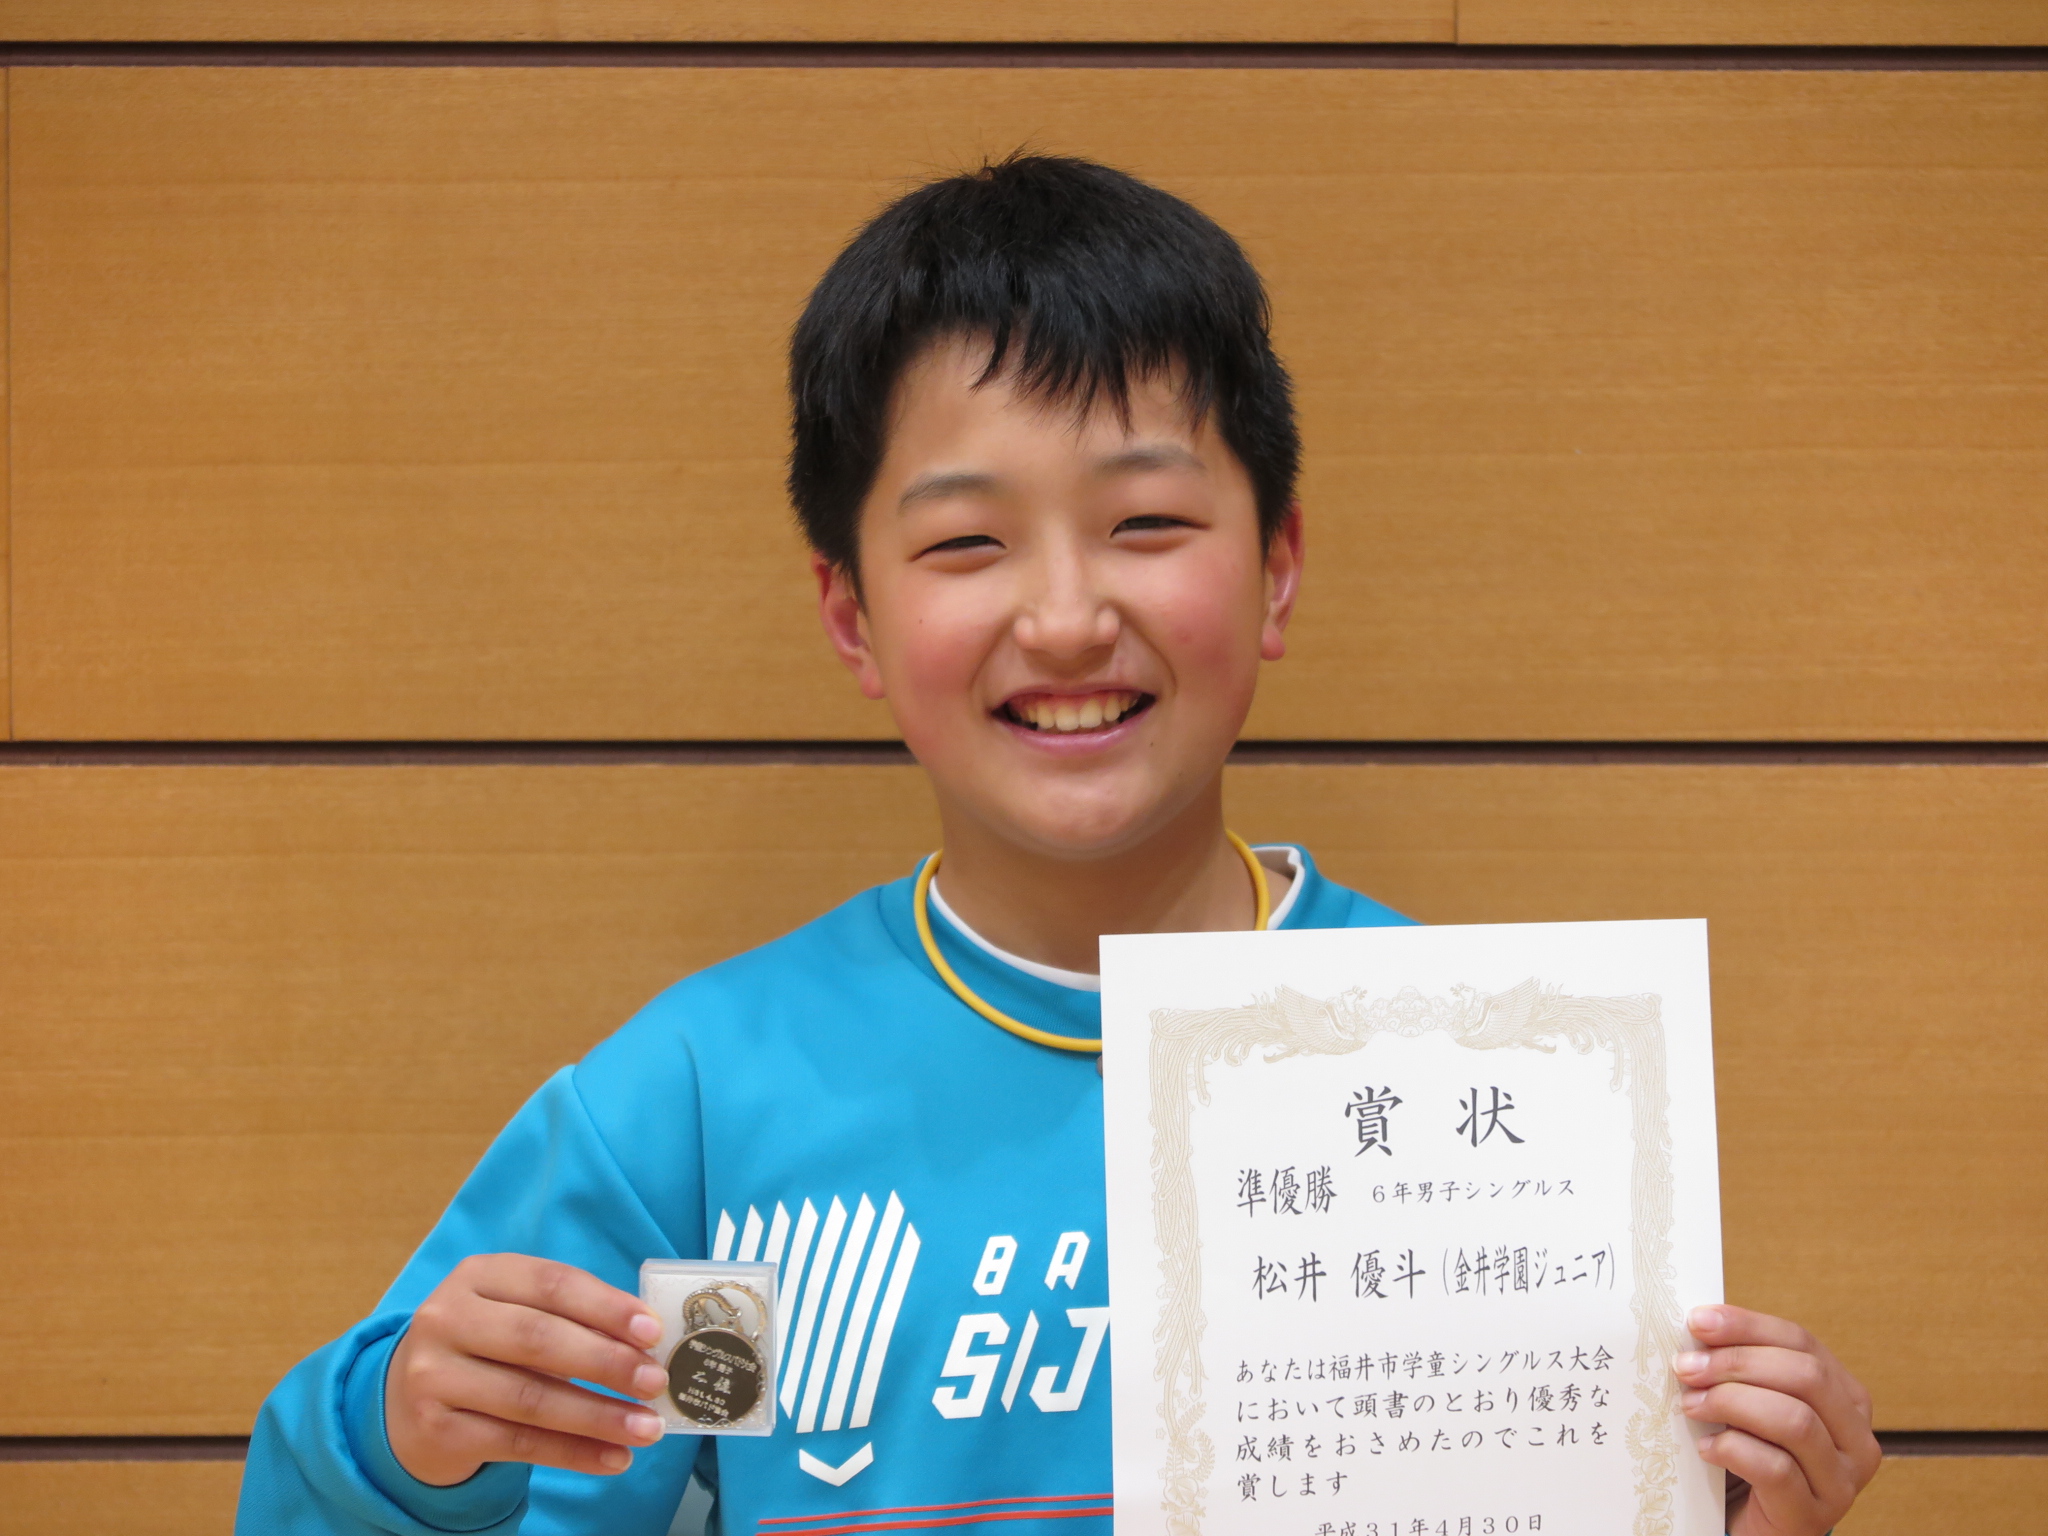 賞状
準優勝 6年男子シングルス
松井 優斗(金井学園ジュニア)
あなたは福井市学童シングルス大会
において頭書のとおり優秀な
成績をおさめたのでこれを
賞します
平成31年4月30日
BA
SIJ
H31.4.30